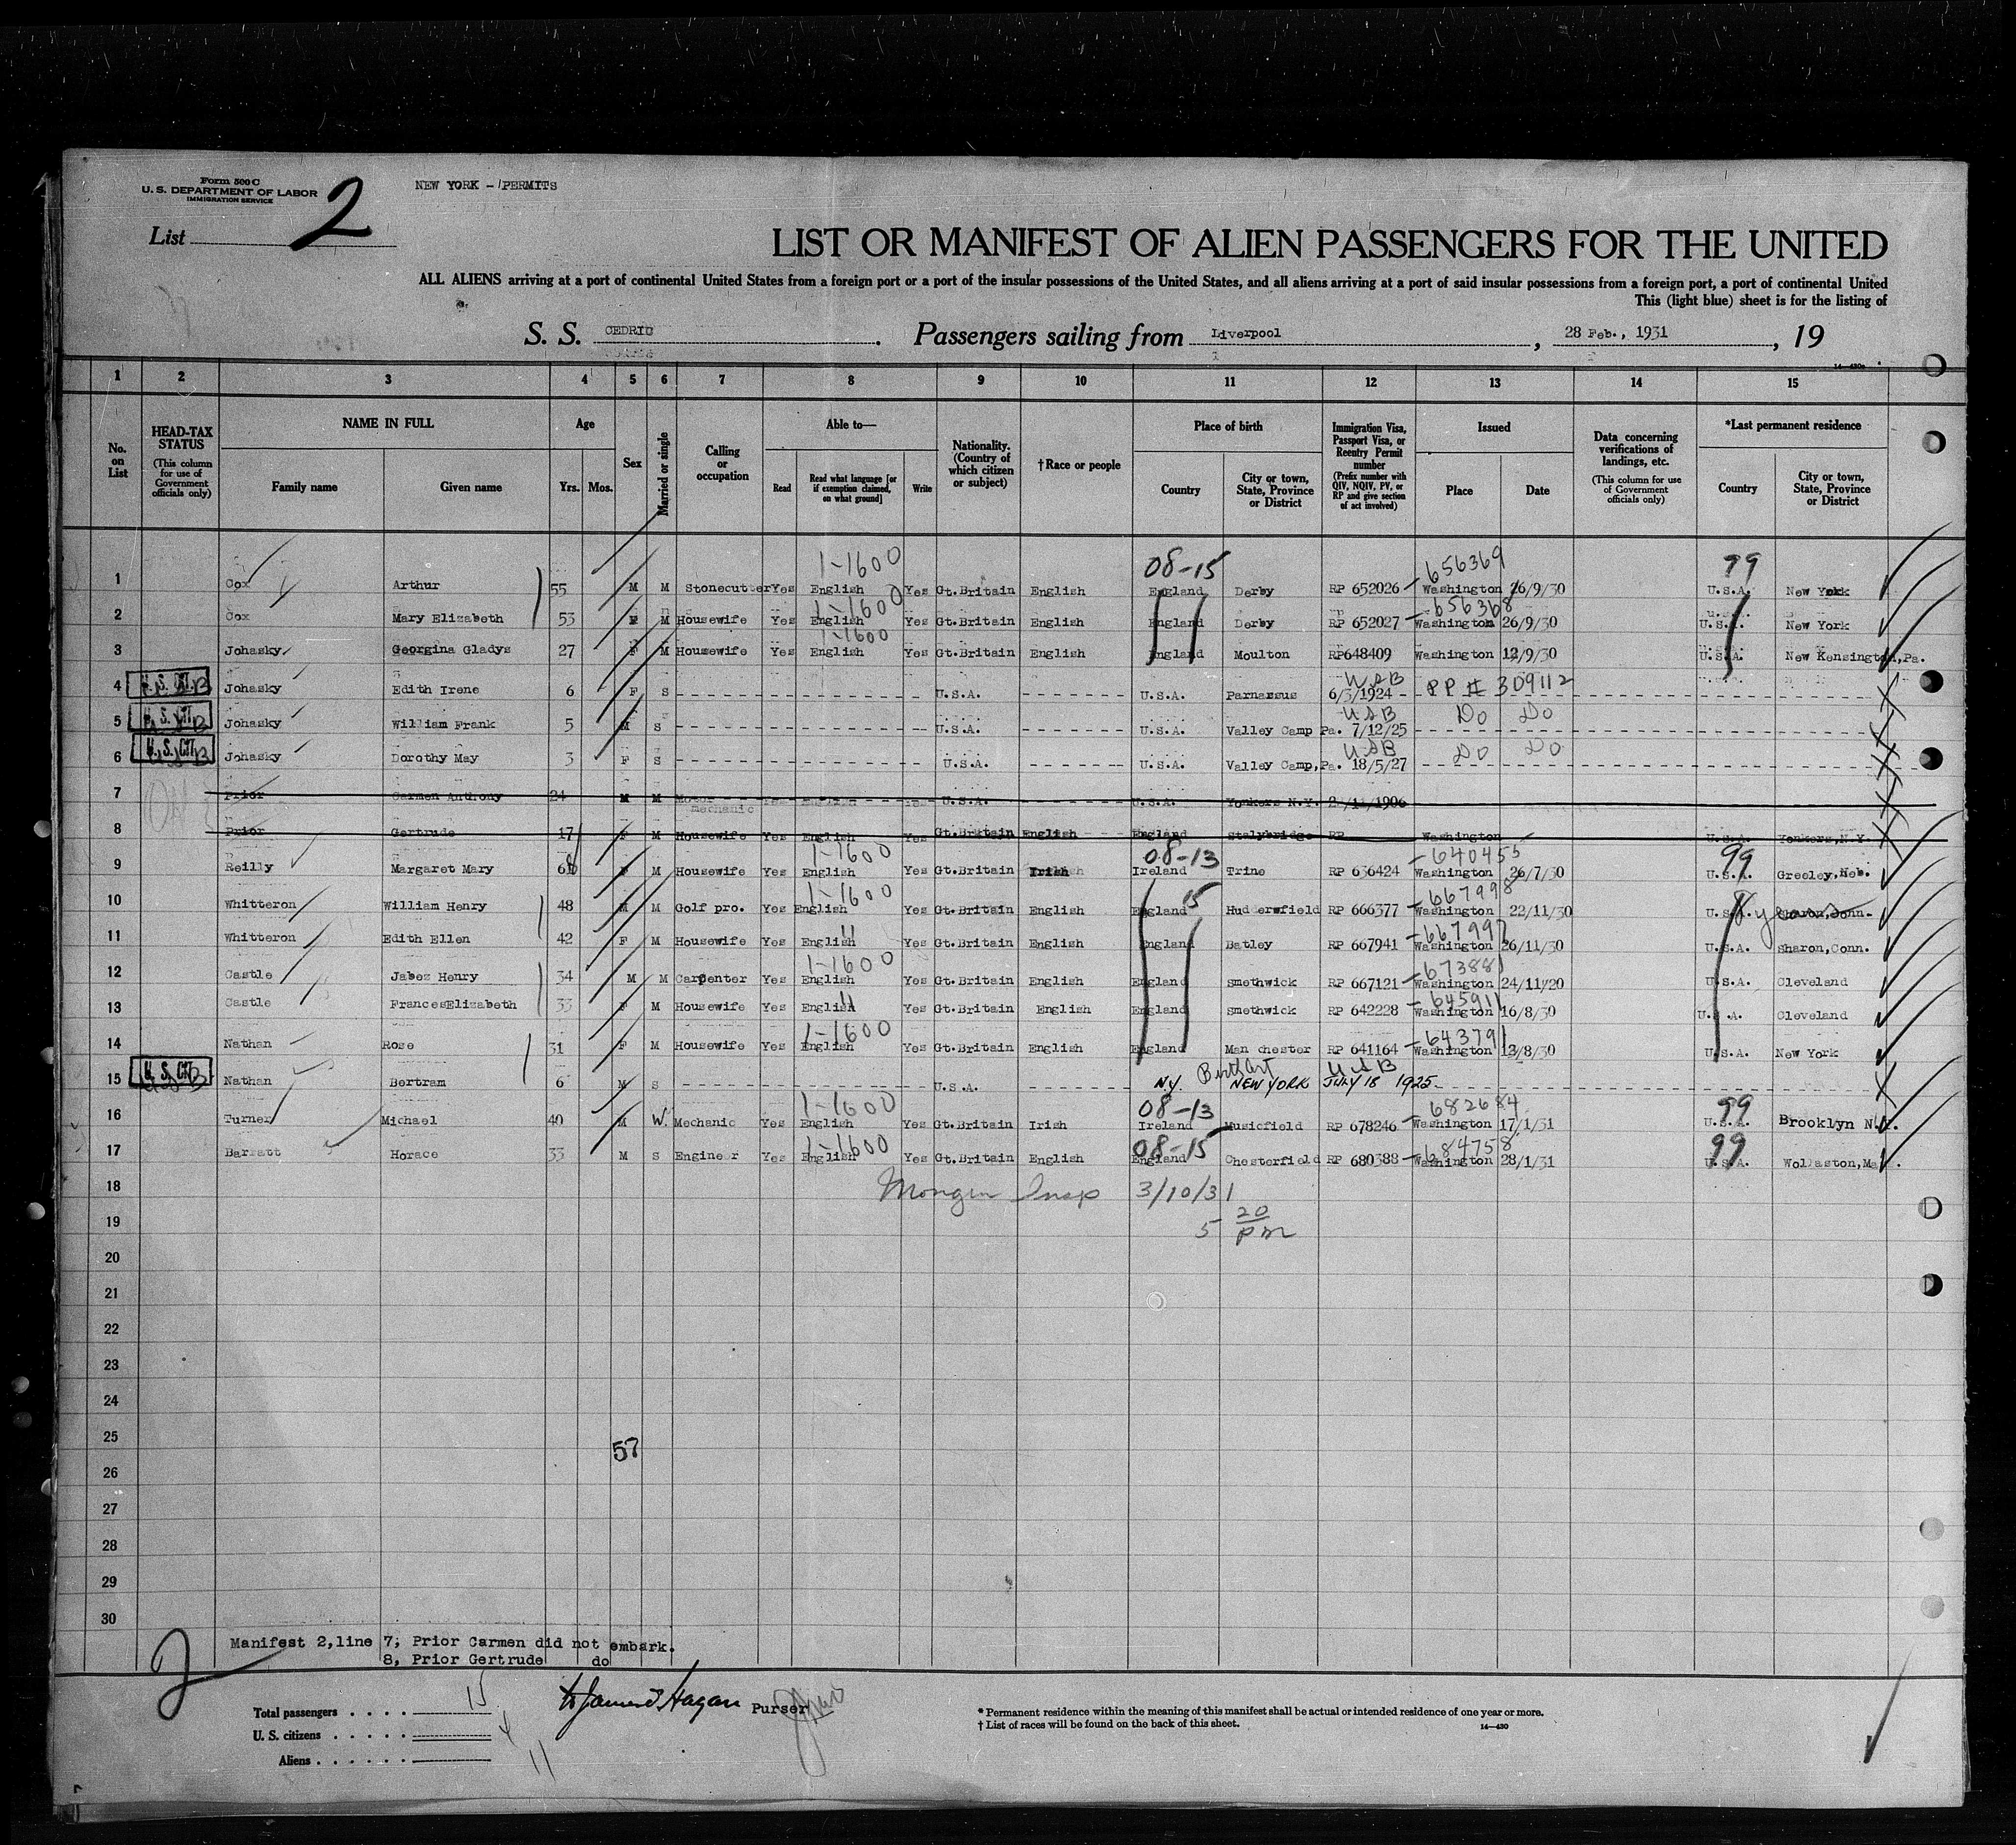 Form 500 C
U. S. DEPARTMENT OF LABOR
IMMIGRATION SERVICE
NEW YORK - PERMITS
List 2
LIST OR MANIFEST OF ALIEN PASSENGERS FOR THE UNITED
ALL ALIENS arriving at a port of continental United States from a foreign port or a port of the insular possessions of the United States, and all aliens arriving at a port of said insular possessions from a foreign port, a port of continental United
This (light blue) sheet is for the listing of
S. S. CEDRIC . Passengers sailing from Liverpool , 28 Feb., 1931 , 19
1 2 3 4 5 6 7 8 9 10 11 12 13 14 15
No. on List
HEAD-TAX STATUS (This column for use of Government officials only)
NAME IN FULL
Family name Given name
Age
Yrs. Mos.
Sex
Married or single
Calling or occupation
Able to—
Read Read what language [or if exemption claimed, on what ground] Write
Nationality. (Country of which citizen or subject)
†Race or people
Place of birth
Country City or town, State, Province or District
Immigration Visa, Passport Visa, or Reentry Permit number (Prefix number with QIV, NQIV, PV, or RP and give section of act involved)
Issued
Place Date
Data concerning verifications of landings, etc. (This column for use of Government officials only)
*Last permanent residence
Country City or town, State, Province or District
1-1600 08-15 656369 99
1 Cox Arthur 55 M M Stonecutter Yes English Yes Gt.Britain English England Derby RP 652026 Washington 26/9/30 U.S.A. New York
1-1600 656368
2 Cox Mary Elizabeth 53 F M Housewife Yes English Yes Gt.Britain English England Derby RP 652027 Washington 26/9/30 U.S.A. New York
1-1600
3 Johasky Georgina Gladys 27 F M Housewife Yes English Yes Gt.Britain English England Moulton RP648409 Washington 12/9/30 U.S.A. New Kensington,Pa.
U. S. CIT. USB PP # 309112
4 Johasky Edith Irene 6 F S U.S.A. U.S.A. Parnassus 6/3/1924
U. S. CIT. USB Do Do
5 Johasky William Frank 5 M S U.S.A. U.S.A. Valley Camp Pa. 7/12/25
U. S. CIT. USB Do Do
6 Johasky Dorothy May 3 F S U.S.A. U.S.A. Valley Camp,Pa. 18/5/27
7 Prior Carmen Anthony 24 M M Motor mechanic Yes English Yes U.S.A. U.S.A. Yonkers N.Y.
8 Prior Gertrude 17 F M Housewife Yes English Yes Gt.Britain English England Stalybridge RP Washington U.S.A. Yonkers,N.Y.
1-1600 08-13 640455 99
9 Reilly Margaret Mary F M Housewife Yes English Yes Gt.Britain Irish Ireland Trine RP 636424 Washington 26/7/30 U.S.A. Greeley,Neb.
1-1600 15 667998
10 Whitteron William Henry 48 M M Golf pro. Yes English Yes Gt.Britain English England Huddersfield RP 666377 Washington 22/11/30 U.S.A. Sharon,Conn.
" 667997
11 Whitteron Edith Ellen 42 F M Housewife Yes English Yes Gt.Britain English England Batley RP 667941 Washington 26/11/30 U.S.A. Sharon,Conn.
1-1600 673881
12 Castle Jabez Henry 34 M M Carpenter Yes English Yes Gt.Britain English England Smethwick RP 667121 Washington 24/11/20 U.S.A. Cleveland
" 645911
13 Castle FrancesElizabeth 33 F M Housewife Yes English Yes Gt.Britain English England Smethwick RP 642228 Washington 16/8/30 U.S.A. Cleveland
1-1600 643791
14 Nathan Rose 31 F M Housewife Yes English Yes Gt.Britain English England Man chester RP 641164 Washington 12/8/30 U.S.A. New York
U. S. CIT. USB
15 Nathan Bertram 6 M S U.S.A. N.Y. NEW YORK JULY 18 1925
1-1600 08-13 682684 99
16 Turner Michael 40 M W. Mechanic Yes English Yes Gt.Britain Irish Ireland Musicfield RP 678246 Washington 17/1/31 U.S.A. Brooklyn N.Y.
1-1600 08-15 684758 99
17 Barratt Horace 33 M S Engineer Yes English Yes Gt.Britain English England Chesterfield RP 680388 Washington 28/1/31 U.S.A. Wollaston,Ma
18 Insp 3/10/31
19 5 20 pm
20
21
22
23
24
25 57
26
27
28
29
30
2 Manifest 2,line 7; Prior Carmen did not embark.
8, Prior Gertrude do
Total passengers . . . . 15
U. S. citizens . . . . . 4
Aliens . . . . . . 11
Purser
* Permanent residence within the meaning of this manifest shall be actual or intended residence of one year or more.
† List of races will be found on the back of this sheet. 14—430